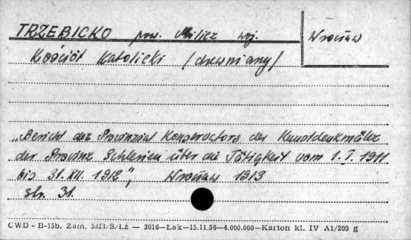 TRZEBICKO pow. Milicz woj. Wrocław
Kościół Katolicki /drewniany/
„Bericht des Provinzial Konservators der Kunstdenkmäler
der Provinz Schlesien über die Tätigkeit vom 1. I. 1911
bis 31. XII. 1912", Wrocław 1913
str. 31.
CWD - B-15b. Zam. 5323/S/Lż — 3016—Łak—15.11.56—4.000.000—Karton kl. IV A1/200 g